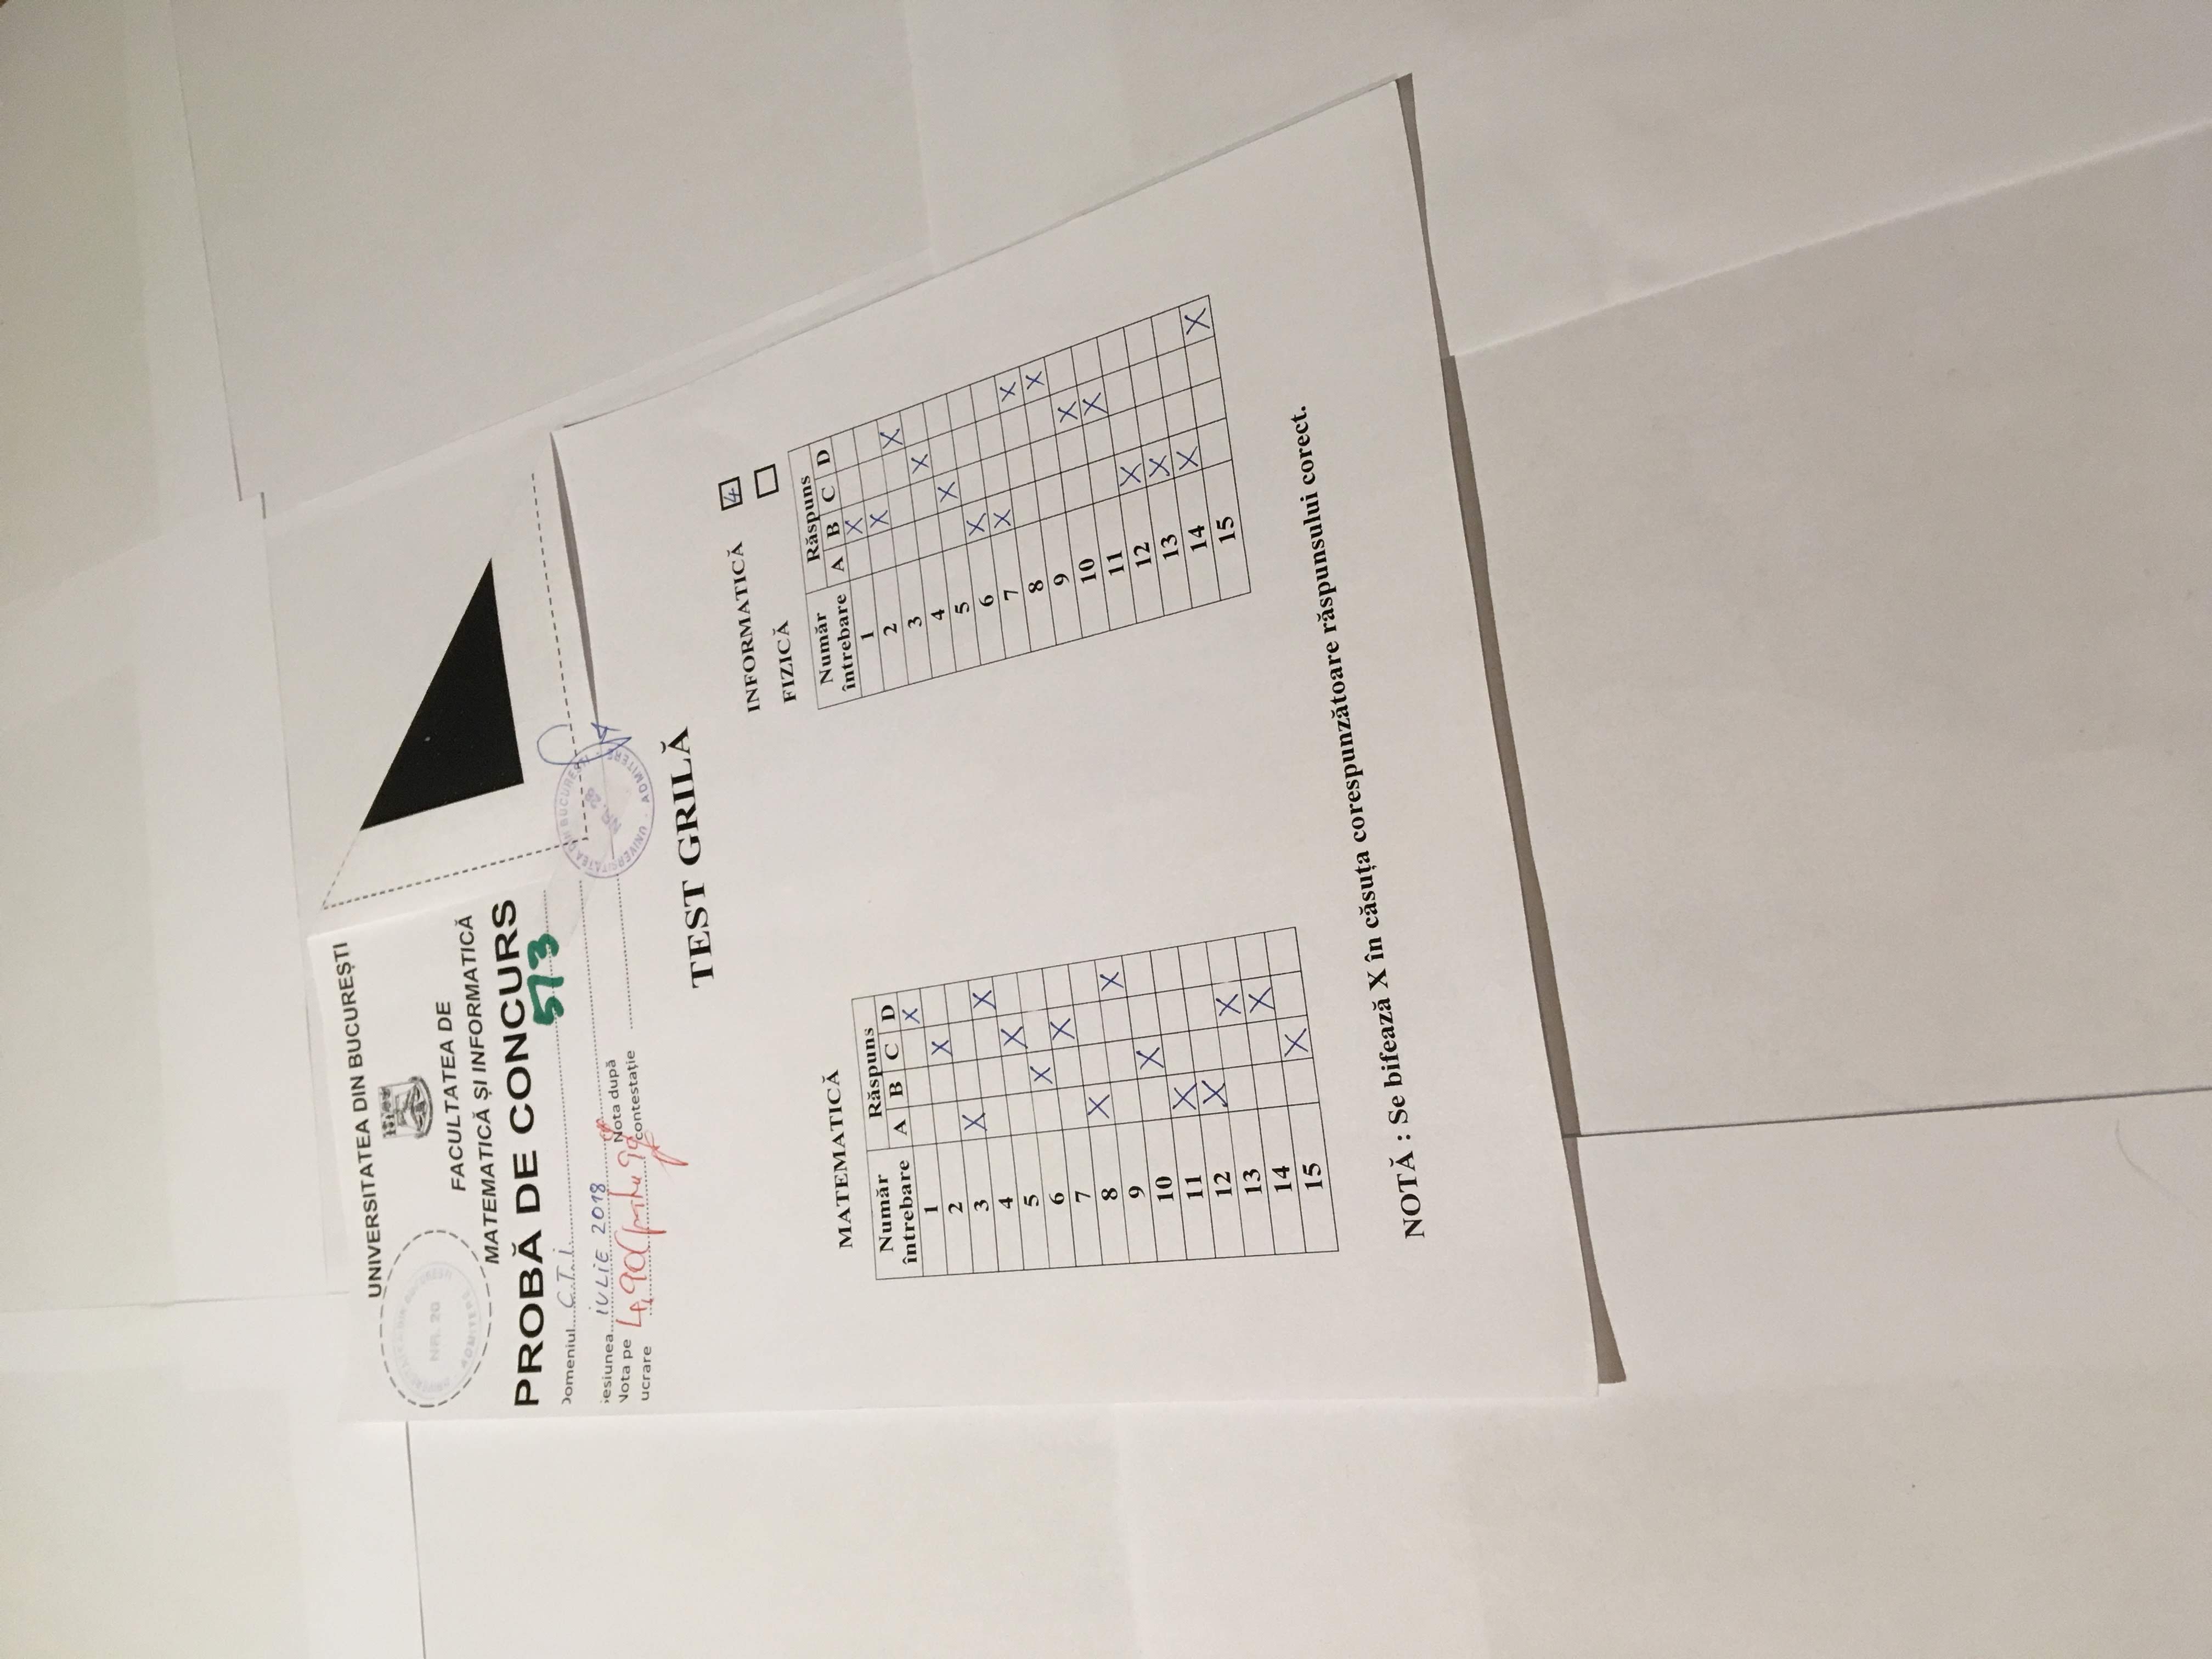 UNIVERSITATEA DIN BUCUREȘTI
ADMITERE
FACULTATEA DE
MATEMATICĂ ȘI INFORMATICĂ
PROBĂ DE CONCURS
573
Domeniul C.T.I.
Sesiunea IULIE 2018
Nota pe
lucrare 4,90
Nota după
contestație
UNIVERSITATEA DIN BUCUREȘTI
NR. 28
ADMITERE
TEST GRILĂ
INFORMATICĂ 4
FIZICĂ
MATEMATICĂ
Număr întrebare Răspuns
A B C D
1 X
2 X
3 X
4 X
5 X
6 X
7 X
8 X
9 X
10 X
11 X
12 X
13 X
14 X
15 X
Număr întrebare Răspuns
A B C D
1 X
2 X
3 X
4 X
5 X
6 X
7 X
8 X
9 X
10 X
11 X
12 X
13 X
14 X
15 X
NOTĂ : Se bifează X în căsuța corespunzătoare răspunsului corect.